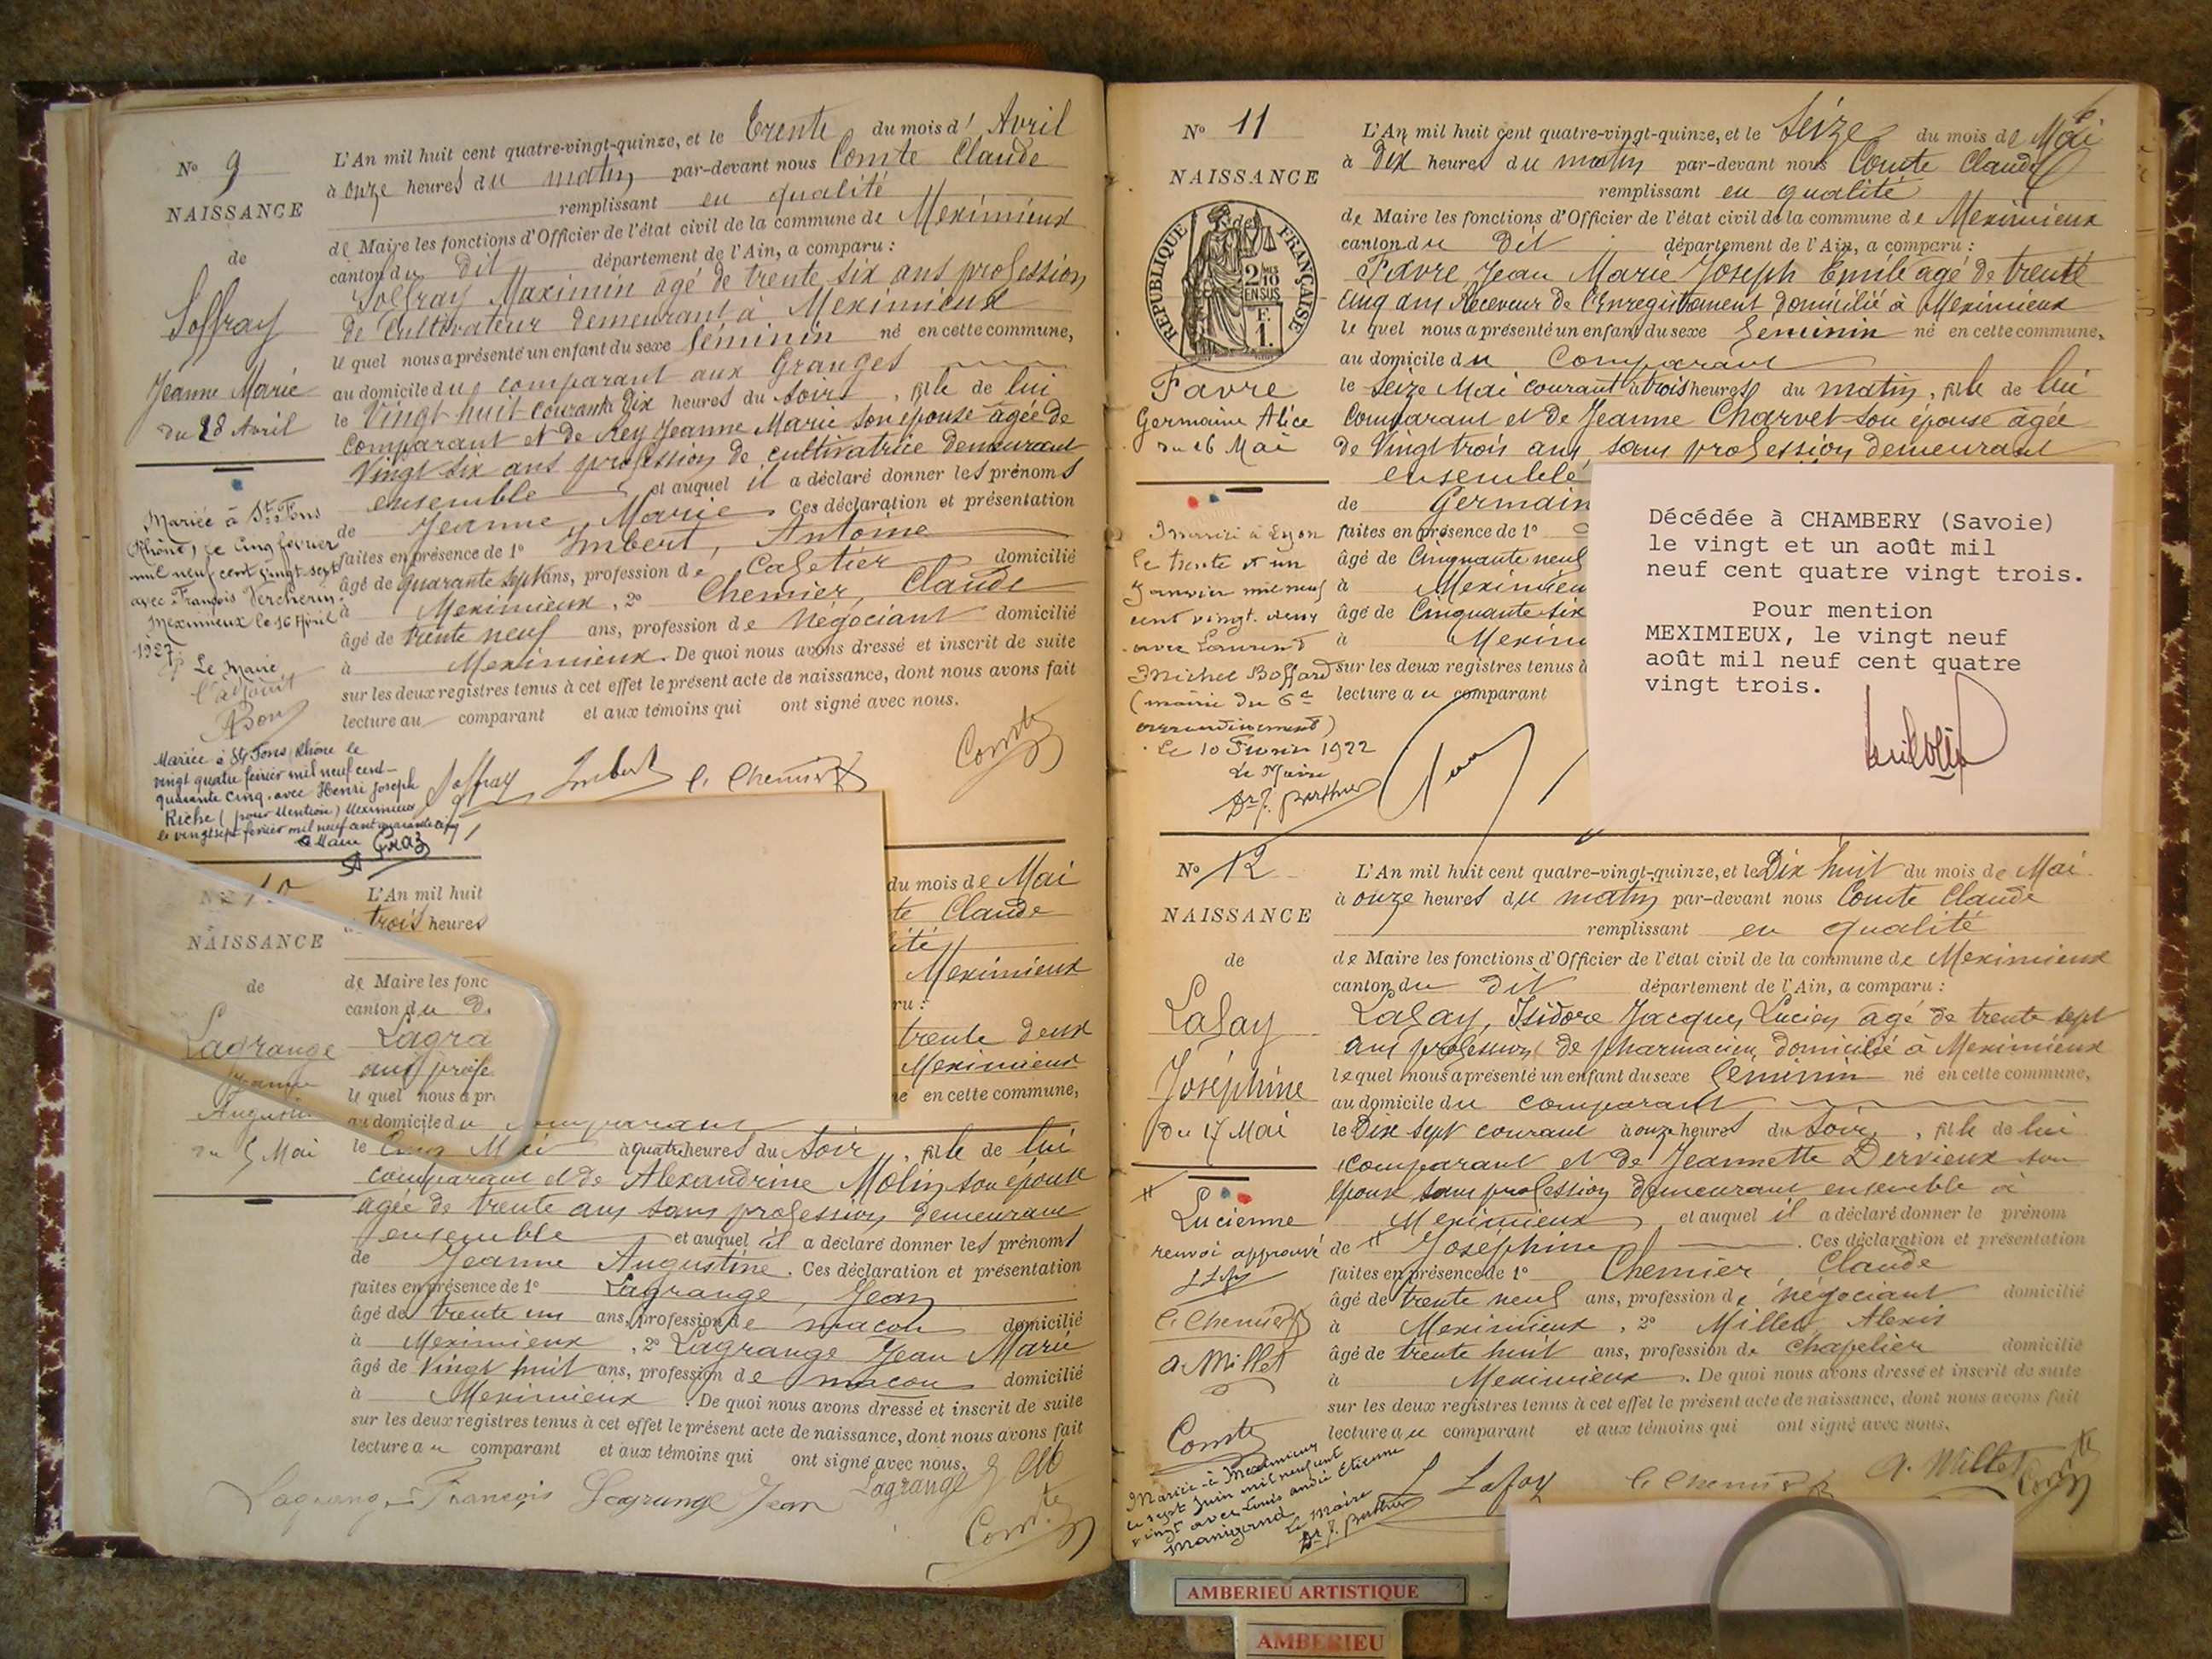 N° 9
NAISSANCE
de
Soffray
Jeanne Marie
du 28 Avril
Mariée à St Fons
(Rhône) le cinq février
mil neuf cent vingt sept
avec François Vercherin.
Meximieux le 16 Avril
1927
Le Maire
l'adjoint
Mariée à St Fons (Rhône) le
vingt quatre février mil neuf cent
quarante cinq avec Henri Joseph
Riche (pour Mention) Meximieux
le vingt sept février mil neuf cent quarante cinq
Le Maire
L'An mil huit cent quatre-vingt-quinze, et le Trente du mois d' Avril
à onze heures du matin par-devant nous Comte Claude
remplissant en qualité
de Maire les fonctions d'Officier de l'état civil de la commune de Meximieux
canton du dit département de l'Ain, a comparu :
Soffray Maximin âgé de trente six ans profession
de Cultivateur demeurant à Meximieux
le quel nous a présenté un enfant du sexe féminin né en cette commune,
au domicile du comparant aux Granges
le Vingt huit courant à Dix heures du soir, fille de lui
comparant et de Rey Jeanne Marie son épouse âgée de
Vingt six ans profession de cultivatrice demeurant
ensemble et auquel il a déclaré donner les prénoms
de Jeanne Marie. Ces déclaration et présentation
faites en présence de 1° Imbert, Antoine
âgé de quarante sept ans, profession de Cafetier domicilié
à Meximieux, 2° Chemier, Claude
âgé de trente neuf ans, profession de Négociant domicilié
à Meximieux. De quoi nous avons dressé et inscrit de suite
sur les deux registres tenus à cet effet le présent acte de naissance, dont nous avons fait
lecture au comparant et aux témoins qui ont signé avec nous.
Soffray Imbert C. Chemier Comte
N° 10
NAISSANCE
de
Lagrange
Jeanne
Augustin
du 5 Mai
L'An mil huit du mois de Mai
trois heures te Claude
ité
de Maire les fonc Meximieux
canton du D ru :
Lagra trente deux
ans profe Meximieux
le quel nous a pr né en cette commune,
au domicile du comparant
le Cinq Mai à quatre heures du soir, fille de lui
comparant et de Alexandrine Molin son épouse
âgée de trente ans sans profession demeurant
ensemble et auquel il a déclaré donner les prénoms
de Jeanne Augustine. Ces déclaration et présentation
faites en présence de 1° Lagrange, Jean
âgé de trente un ans, profession de maçon domicilié
à Meximieux, 2° Lagrange Jean Marie
âgé de Vingt huit ans, profession de maçon domicilié
à Meximieux. De quoi nous avons dressé et inscrit de suite
sur les deux registres tenus à cet effet le présent acte de naissance, dont nous avons fait
lecture au comparant et aux témoins qui ont signé avec nous.
Lagrange François Lagrange Jean Lagrange
Comte
N° 11
NAISSANCE
de
RÉPUBLIQUE FRANÇAISE
2/10
EN SUS
F.
1.
Favre
Germaine Alice
du 16 Mai
Mariée à Lyon
le trente et un
Janvier mil neuf
cent vingt deux
avec Laurent
Michel Boffard
(mairie du 6e
arrondissement)
Le 10 Février 1922
Le Maire
Dr J. Berthier
L'An mil huit cent quatre-vingt-quinze, et le Seize du mois de Mai
à Dix heures du matin par-devant nous Comte Claude
remplissant en qualité
de Maire les fonctions d'Officier de l'état civil de la commune de Meximieux
canton du dit département de l'Ain, a comparu :
Favre, Jean Marie Joseph Emile âgé de trente
cinq ans Receveur de l'Enregistrement domicilié à Meximieux
le quel nous a présenté un enfant du sexe féminin né en cette commune,
au domicile du Comparant
le seize Mai courant à trois heures du matin, fille de lui
Comparant et de Jeanne Charvet son épouse âgée
de Vingt trois ans, sans profession demeurant
ensemble
de Germain
faites en présence de 1°
âgé de Cinquante neuf
à Meximieu
âgé de Cinquante six
à Meximi
sur les deux registres tenus à
lecture au comparant
Décédée à CHAMBERY (Savoie)
le vingt et un août mil
neuf cent quatre vingt trois.
Pour mention
MEXIMIEUX, le vingt neuf
août mil neuf cent quatre
vingt trois.
N° 12
NAISSANCE
de
Lafay
Joséphine
du 17 Mai
Lucienne
renvoi approuvé
C. Chemier
A. Millet
Comte
Mariée à Meximieux
le sept juin mil neuf cent
vingt avec Louis André Etienne
Manigand
Le Maire
Dr J. Berthier
L'An mil huit cent quatre-vingt-quinze, et le Dix huit du mois de Mai
à onze heures du matin par-devant nous Comte Claude
remplissant en qualité
de Maire les fonctions d'Officier de l'état civil de la commune de Meximieux
canton du dit département de l'Ain, a comparu :
Lafay, Isidore Jacques Lucien âgé de trente sept
ans profession de pharmacien domicilié à Meximieux
lequel nous a présenté un enfant du sexe féminin né en cette commune,
au domicile du comparant
le Dix sept courant à onze heures du soir, fille de lui
comparant et de Jeannette Dervieux son
épouse sans profession demeurant ensemble à
Meximieux et auquel il a déclaré donner le prénom
de Joséphine. Ces déclaration et présentation
faites en présence de 1° Chemier Claude
âgé de trente neuf ans, profession de négociant domicilié
à Meximieux, 2° Millet Alexis
âgé de trente huit ans, profession de Chapelier domicilié
à Meximieux. De quoi nous avons dressé et inscrit de suite
sur les deux registres tenus à cet effet le présent acte de naissance, dont nous avons fait
lecture au comparant et aux témoins qui ont signé avec nous.
L Lafay C. Chemier A. Millet Comte
AMBERIEU ARTISTIQUE
AMBERIEU